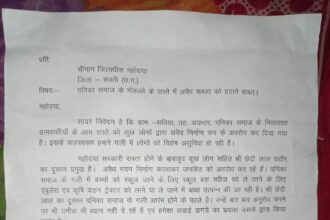 प्रति,
श्रीमान जिलाधीश महोदया
जिला – सक्ती (छ.ग.)
विषय:- पनिका समाज के मोहल्ले के रास्ते में अवैध कब्जा को हटाने बाबत्।
महोदया,
सादर निवेदन है कि ग्राम - तह. अड़भार, पनिका समाज के निवासरत
ग्रामवासीयों के आम रास्ते को कुछ लोगों द्वारा अवैध निर्माण कर के अवरोध कर दिया गया
है। इसके फलस्वरूप हमारे गली में लोगों को विशेष असुविधा हो रही है।
महोदया सरकारी रास्ता होने के बावजूद कुछ लोग सहित श्री छेदी लाल राठौर
का दुकान प्रमुख है। अवैध भवन निर्माण करवाकर जनहित को अवरोध कर रहे हैं। पनिका
समाज के गली में बच्चों को स्कूल जाने के लिए स्कूल बस मरीज को ले जाने के लिए
एंबुलेंस एवं कृषि वाहन ट्रेक्टर को लाने या ले जाने में बाधा उत्पन्न की जा रही है। श्री छेदी
लाल का दुकान पनिका समाज के गली आरंभ होने के पहले है। उन्हे बार बार अनुरोध करने
पर भी तनिक भी ध्यान नहीं दे रहें हैं एवं हमेशा लडाई झगडे का प्रयास उसके द्वारा किया